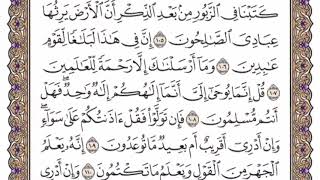 كَتَبْنَا فِي ٱلزَّبُورِ مِنۢ بَعْدِ ٱلذِّكْرِ أَنَّ ٱلْأَرْضَ يَرِثُهَا
عِبَادِيَ ٱلصَّـٰلِحُونَ ١٠٥ إِنَّ فِي هَـٰذَا لَبَلَـٰغًا لِّقَوْمٍ
عَـٰبِدِينَ ١٠٦ وَمَآ أَرْسَلْنَـٰكَ إِلَّا رَحْمَةً لِّلْعَـٰلَمِينَ
١٠٧ قُلْ إِنَّمَا يُوحَىٰٓ إِلَىَّ أَنَّمَآ إِلَـٰهُكُمْ إِلَـٰهٌ وَٰحِدٌ فَهَلْ
أَنتُم مُّسْلِمُونَ ١٠٨ فَإِن تَوَلَّوْا۟ فَقُلْ ءَاذَنتُكُمْ عَلَىٰ سَوَآءٍ
وَإِنْ أَدْرِىٓ أَقَرِيبٌ أَم بَعِيدٌ مَّا تُوعَدُونَ ١٠٩ إِنَّهُۥ يَعْلَمُ
ٱلْجَهْرَ مِنَ ٱلْقَوْلِ وَيَعْلَمُ مَا تَكْتُمُونَ ١١٠ وَإِنْ أَدْرِى